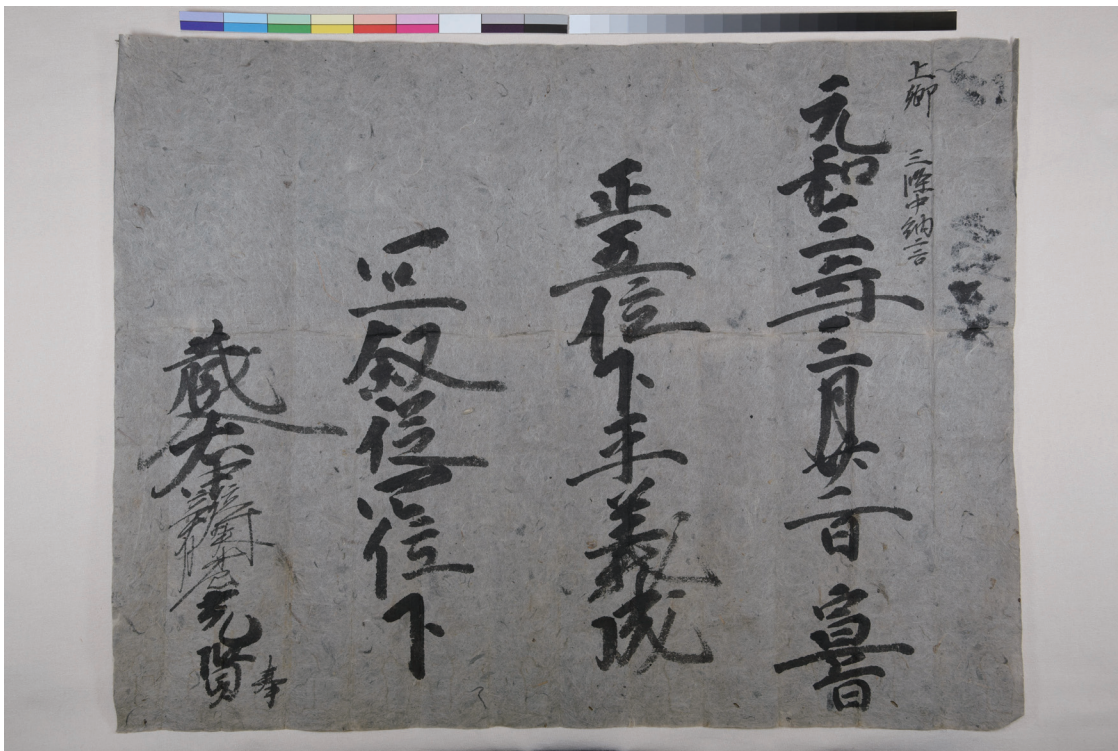 上卿 三條中納言
元和二年三月廿二日 宣旨
正五位下平義成
宜叙從四位下
蔵人右 衛 藤原光賢奉